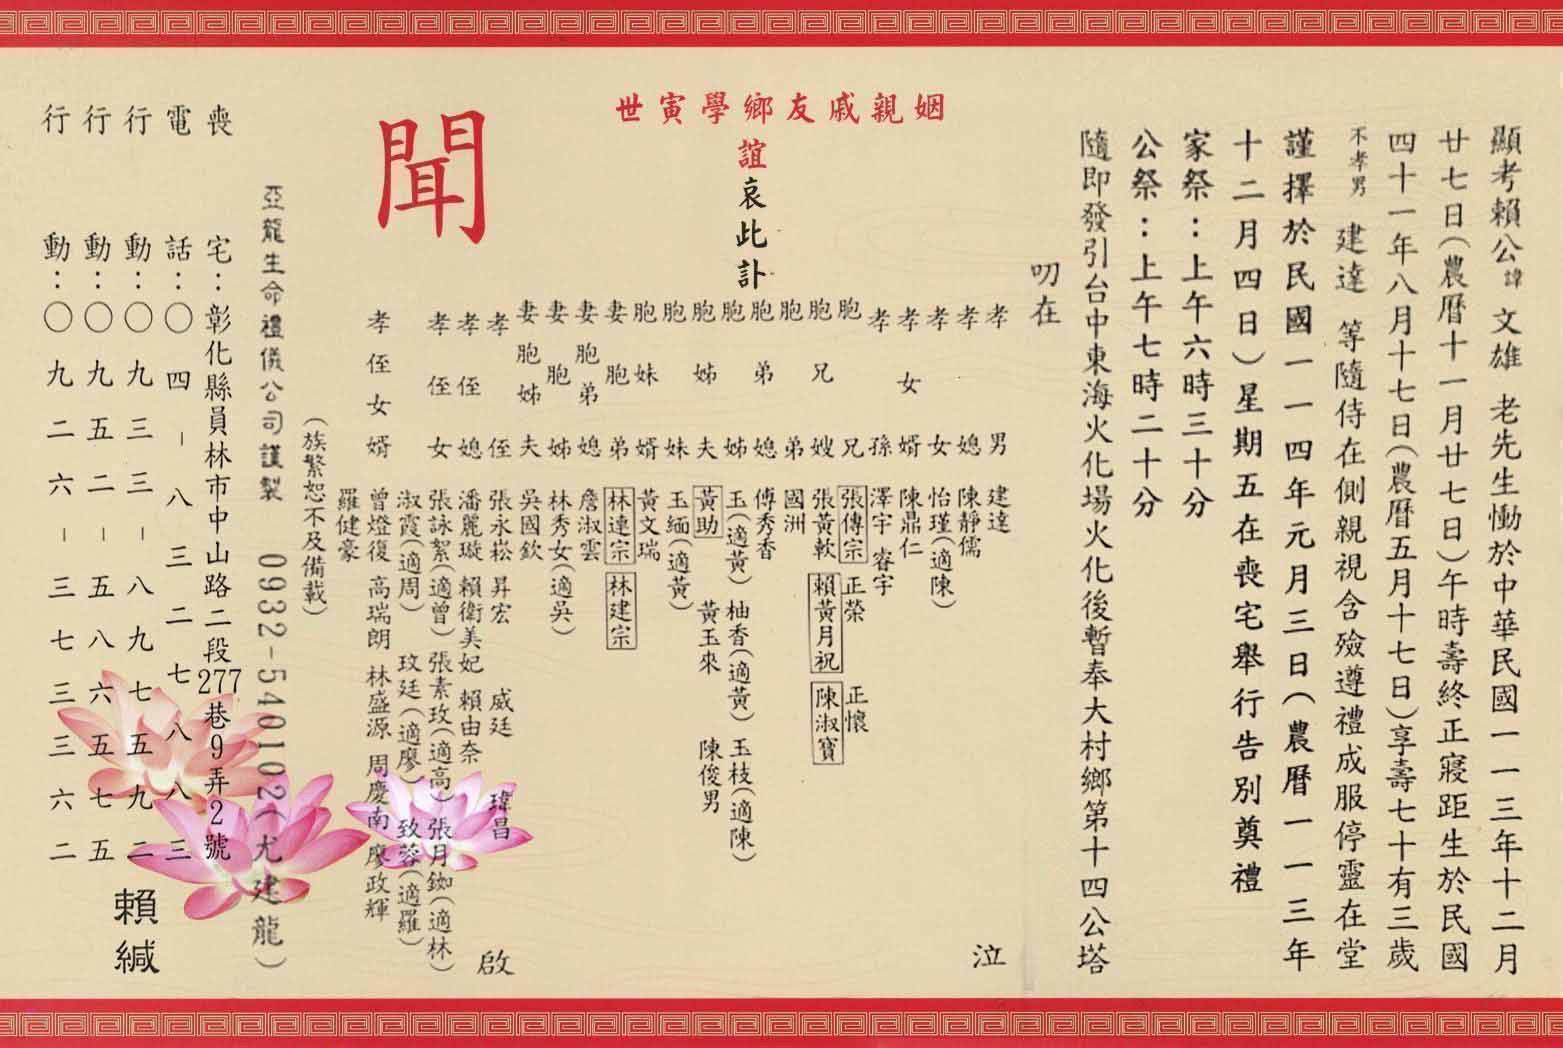 顯考賴公諱 文雄 老先生慟於中華民國一一三年十二月
廿七日(農曆十一月廿七日)午時壽終正寢距生於民國
四十一年八月十七日(農曆五月十七日)享壽七十有三歲
不孝男 建達 等隨侍在側親視含殮遵禮成服停靈在堂
謹擇於民國一一四年元月三日(農曆一一三年
十二月四日)星期五在喪宅舉行告別奠禮
家祭：上午六時三十分
公祭：上午七時二十分
隨即發引台中東海火化場火化後暫奉大村鄉第十四公塔
叨在
世寅學鄉友戚親姻
誼哀此訃
聞
孝男 建達
孝媳 陳靜儒
孝女 怡瑾(適陳)
孝女婿 陳鼎仁
孝孫 澤宇 睿宇
胞兄 張傳宗 正榮 正懷
胞兄嫂 張黃軟 賴黃月祝 陳淑寶
胞弟 國洲
胞弟媳 傅秀香
胞姊 玉(適黃) 柚香(適黃) 玉枝(適陳)
胞姊夫 黃助 黃玉來 陳俊男
胞妹 玉緬(適黃)
胞妹婿 黃文瑞
妻胞弟 林連宗 林建宗
妻胞弟媳 詹淑雲
妻胞姊 林秀女(適吳)
妻胞姊夫 吳國欽
孝侄 張永崧 昇宏 威廷 瑋昌
孝侄媳 潘麗璇 賴衛美妃 賴由奈
孝侄女 張詠絮(適曾) 張素玫(適高) 張月鉫(適林)
淑霞(適周) 玟廷(適廖) 致蓉(適羅)
孝侄女婿 曾燈復 高瑞朗 林盛源 周慶南 廖政輝
羅健豪
泣
啟
(族繁恕不及備載)
亞龍生命禮儀公司謹製 0932-540102(尤建龍)
喪宅：彰化縣員林市中山路二段277巷9弄2號
電話：〇四-八三二七八八三
行動：〇九三三-八九七五九二
行動：〇九五二-五八六五七五
行動：〇九二六-三七三三六二
賴緘